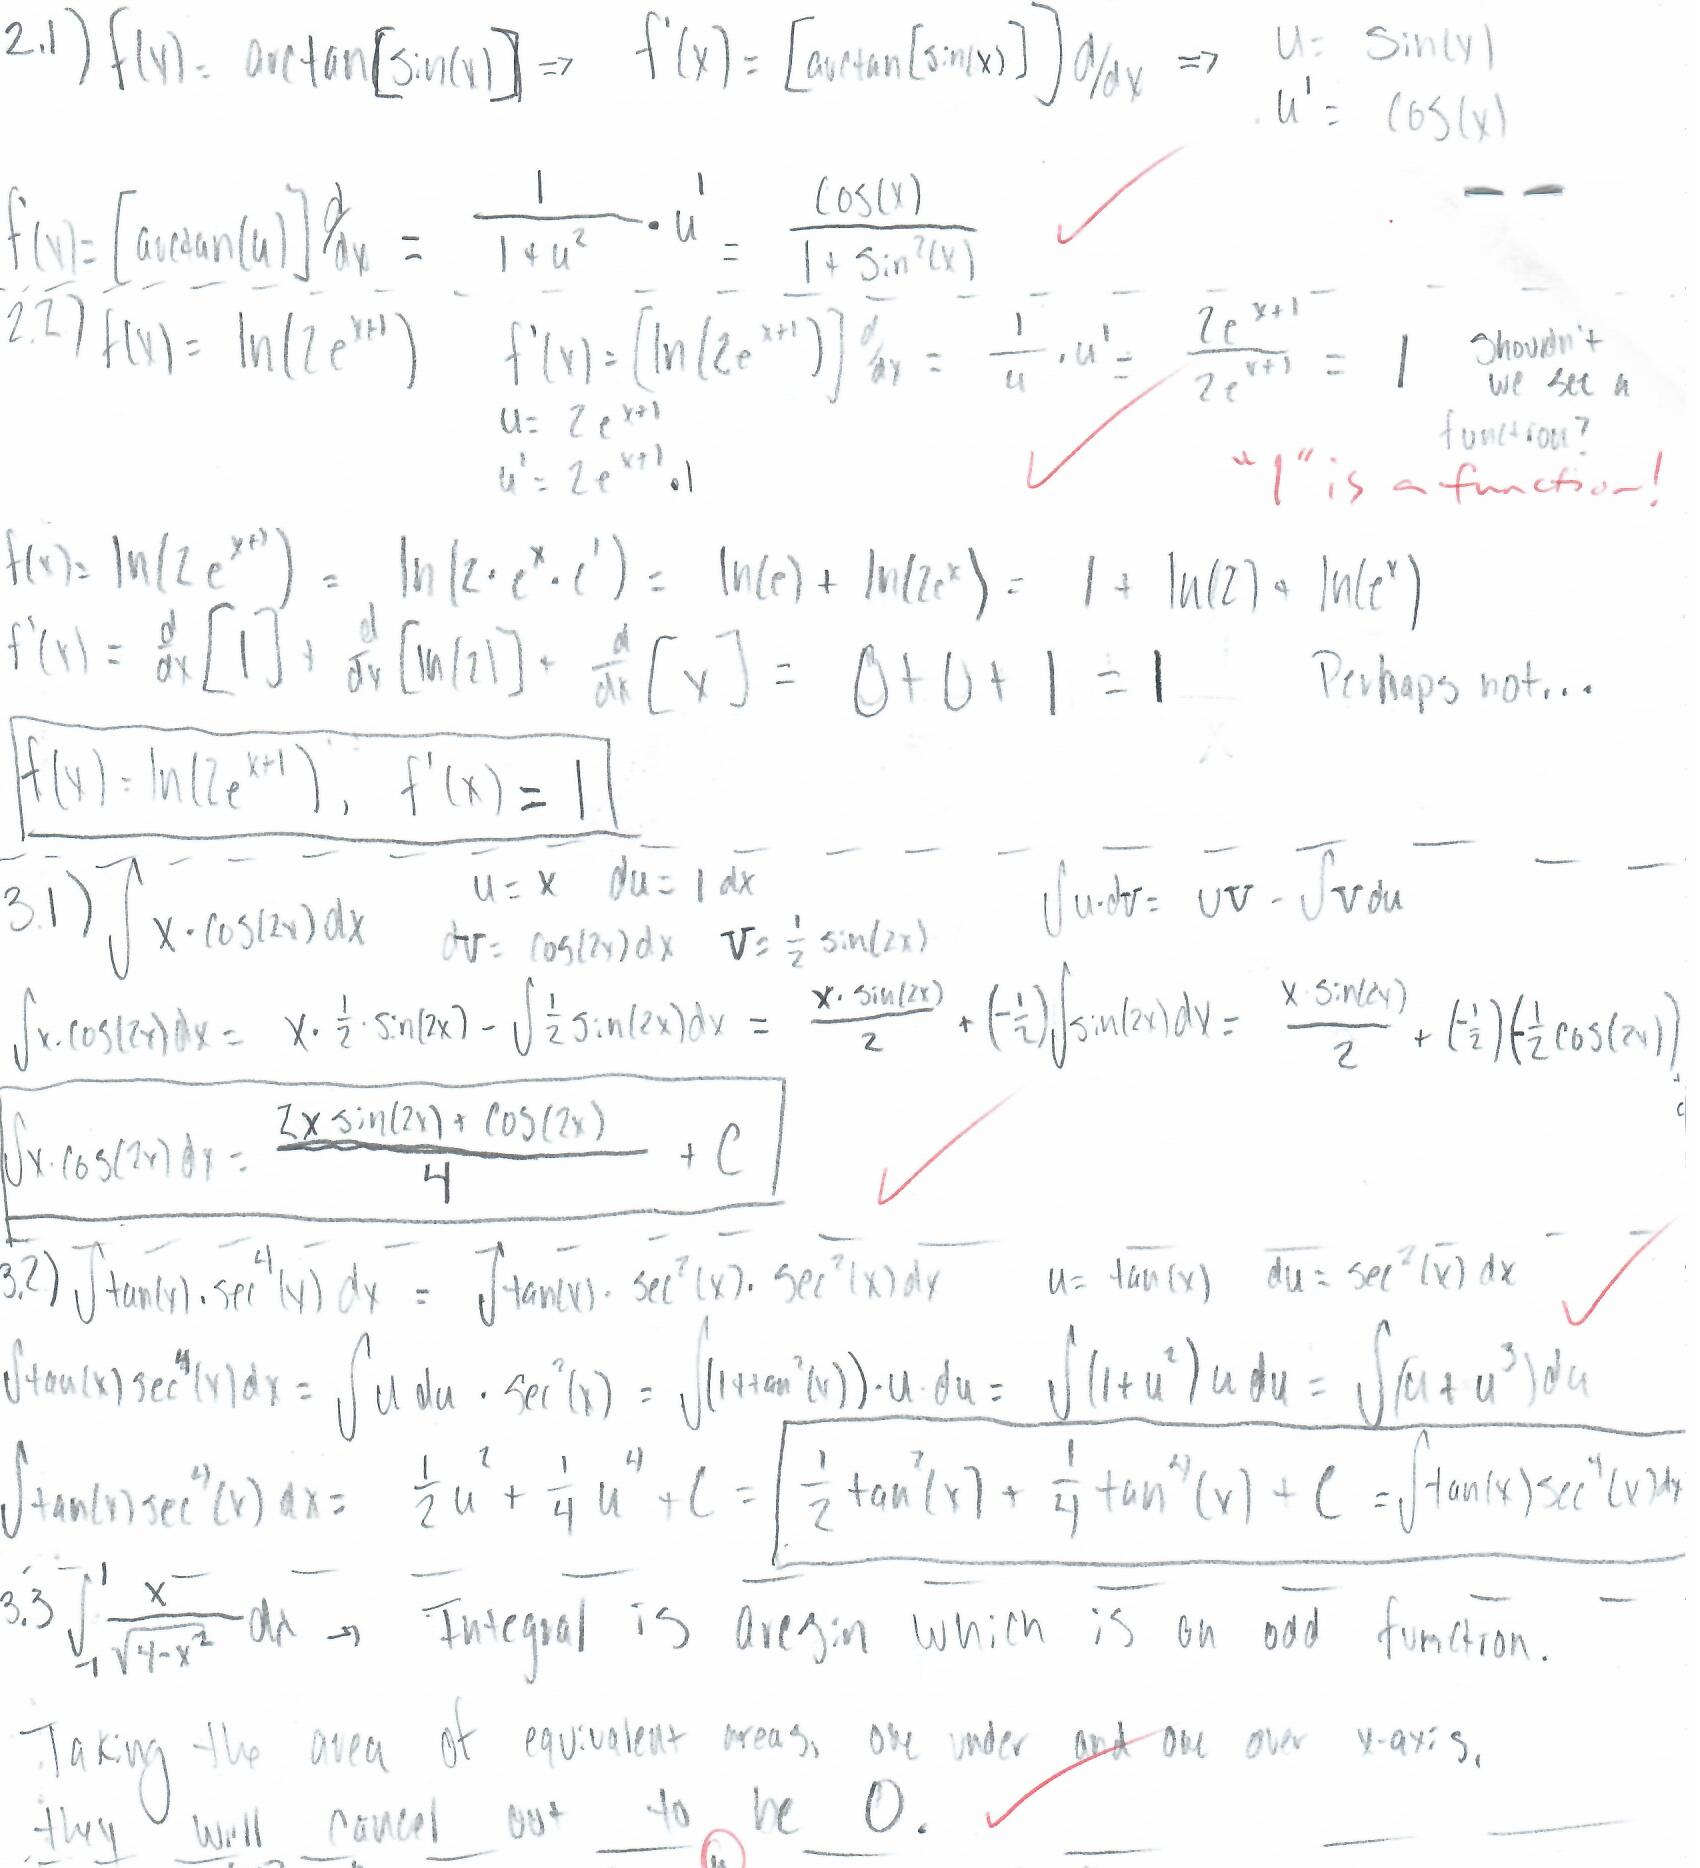 2.1) f(x) = arctan[sin(x)] => f'(x) = [arctan[sin(x)]] d/dx => u = sin(x)
u' = cos(x)
f'(x) = [arctan(u)] d/dx = 1/(1+u²) · u' = cos(x)/(1+sin²(x))
2.2) f(x) = ln(2e^(x+1)) f'(x) = [ln(2e^(x+1))] d/dx = 1/u · u' = 2e^(x+1)/2e^(x+1) = 1 Shouldn't we see a function?
u = 2e^(x+1)
u' = 2e^(x+1) · 1
"1" is a function!
f(x) = ln(2e^(x+1)) = ln(2·e^x·e^1) = ln(e) + ln(2e^x) = 1 + ln(2) + ln(e^x)
f'(x) = d/dx [1] + d/dx [ln(2)] + d/dx [x] = 0 + 0 + 1 = 1 Perhaps not...
f(x) = ln(2e^(x+1)), f'(x) = 1
3.1) ∫ x·cos(2x) dx u = x du = 1 dx ∫u·dv = uv - ∫v du
dv = cos(2x) dx v = 1/2 sin(2x)
∫x·cos(2x) dx = x·1/2·sin(2x) - ∫1/2 sin(2x) dx = x·sin(2x)/2 + (-1/2)∫sin(2x) dx = x·sin(2x)/2 + (-1/2)(-1/2 cos(2x)) + c
∫x·cos(2x) dx = (2x sin(2x) + cos(2x))/4 + C
3.2) ∫tan(x)·sec⁴(x) dx = ∫tan(x)·sec²(x)·sec²(x) dx u = tan(x) du = sec²(x) dx
∫tan(x) sec⁴(x) dx = ∫u du · sec²(x) = ∫(1+tan²(x))·u·du = ∫(1+u²) u du = ∫(u+u³) du
∫tan(x) sec⁴(x) dx = 1/2 u² + 1/4 u⁴ + C = 1/2 tan²(x) + 1/4 tan⁴(x) + C = ∫tan(x) sec⁴(x) dx
3.3 ∫_-1^1 x/√(4-x²) dx → Integral is arcsin which is an odd function.
Taking the area of equivalent areas, one under and one over x-axis,
they will cancel out to be 0.